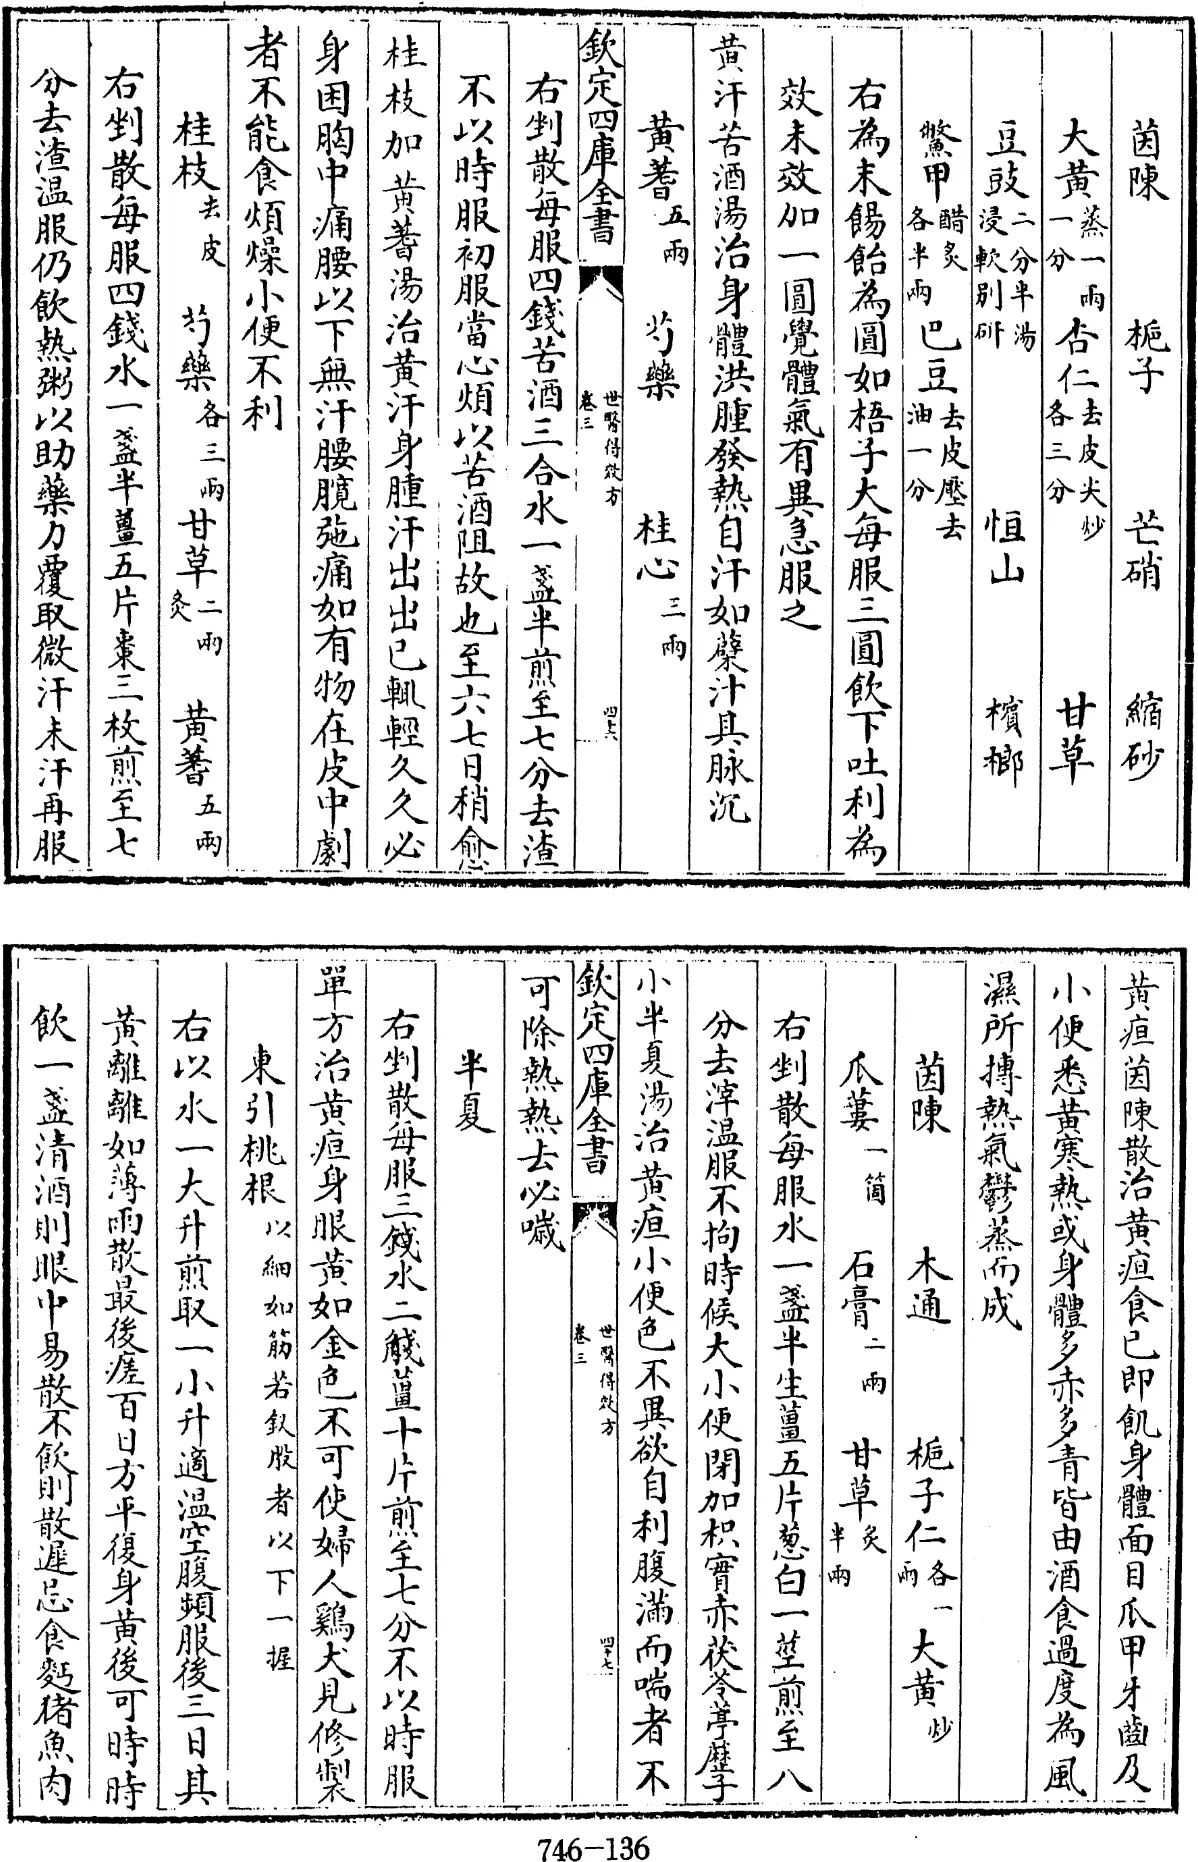 茵陳 梔子 芒硝 縮砂
大黄蒸一兩一分 杏仁去皮尖炒各三分 甘草
豆豉二分半湯浸軟别研 恒山 檳榔
鱉甲醋炙各半兩 巴豆去皮壓去油一分
右為末餳飴為圓如梧子大每服三圓飲下吐利為
效未效加一圓覺體氣有異急服之
黄汗苦酒湯治身體洪腫發熱自汗如蘗汁具脉沉
黄蓍五兩 芍藥 桂心三兩
欽定四庫全書 世醫得效方 卷三 四十六
右剉散每服四錢苦酒三合水一盞半煎至七分去渣
不以時服初服當心煩以苦酒阻故也至六七日稍愈
桂枝加黄蓍湯治黄汗身腫汗出出已輒輕久久必
身困胸中痛腰以下無汗腰髖弛痛如有物在皮中劇
者不能食煩燥小便不利
桂枝去皮 芍藥各三兩 甘草二兩炙 黄蓍五兩
右剉散每服四錢水一盞半薑五片棗三枚煎至七
分去渣温服仍飲熱粥以助藥力覆取微汗未汗再服
黄疸茵陳散治黄疸食已即飢身體面目爪甲牙齒及
小便悉黄寒熱或身體多赤多青皆由酒食過度為風
濕所摶熱氣鬱蒸而成
茵陳 木通 梔子仁各一兩 大黄炒
瓜蔞一箇 石膏二兩 甘草炙半兩
右剉散每服水一盞半生薑五片葱白一莖煎至八
分去滓温服不拘時候大小便閉加枳實赤茯苓葶藶子
小半夏湯治黄疸小便色不異欲自利腹滿而喘者不
欽定四庫全書 世醫得效方 卷三 四十七
可除熱熱去必噦
半夏
右剉散每服三錢水二醆薑十片煎至七分不以時服
單方治黄疸身眼黄如金色不可使婦人鷄犬見修製
東引桃根以細如筋若釵股者以下一握
右以水一大升煎取一小升適温空腹頻服後三日其
黄離離如薄雨散最後瘥百日方平復身黄後可時時
飲一盞清酒則眼中易散不飲則散遲忌食麫猪魚肉
746-136